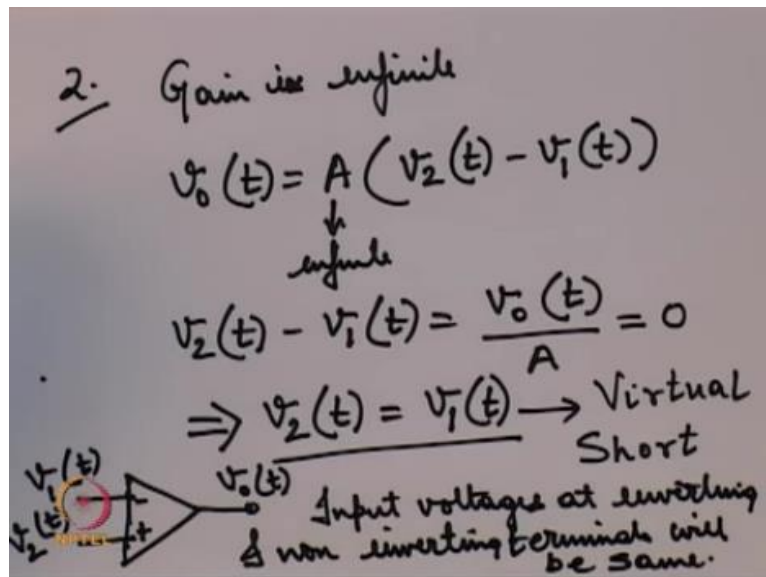 2. Gain is infinite
v₀(t) = A(v₂(t) - v₁(t))
↓
infinite
v₂(t) - v₁(t) = v₀(t)/A = 0
⇒ v₂(t) = v₁(t) → Virtual
Short
v₁(t)
v₂(t)
-
+
v₀(t)
NPTEL
Input voltages at inverting
& non inverting terminals will
be same.